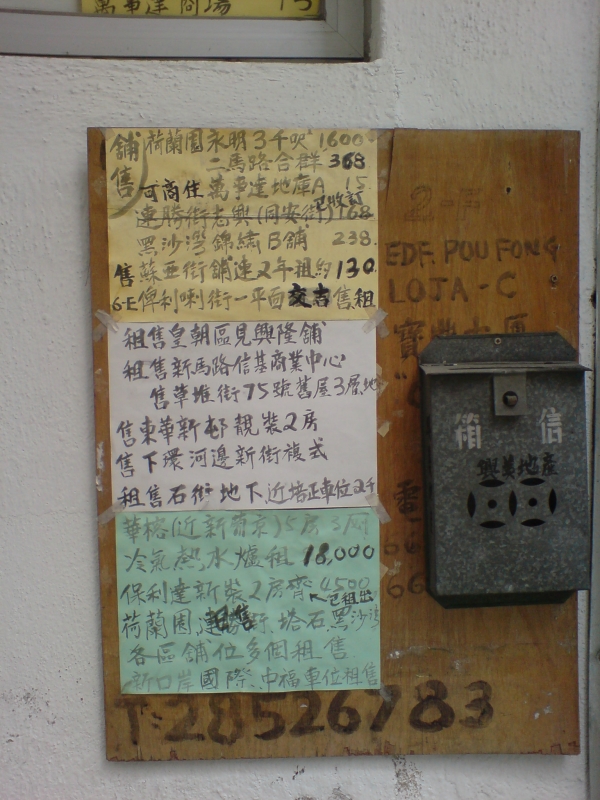 萬事達商場 15
舖售
荷蘭園永明3千呎 1600
二馬路合群 368
可商住 萬事達地庫A 15
已收訂
連勝街志興(同安街) 168
黑沙灣錦繡B舖 238.
售蘇亜街舖連2年租約 130
6-E俾利喇街一平面交吉售租
租售皇朝區見興隆舖
租售新馬路信基商業中心
售草堆街75號舊屋3層地
售東華新邨靚裝2房
售下環河邊新街複式
租售石街地下近塔正車位2千
華榕(近新葡京)5房3厠
冷氣熱水爐租 18,000
保利達新裝2房齊 4500
已租出
荷蘭園 租售 塔石黑沙灣
各區舖位多個租售
新口岸國際、中福車位租售
T:28526783
2-F
EDF. POU FONG
LOJA-C
寶豐大厦
電
66
箱 信
興美地產